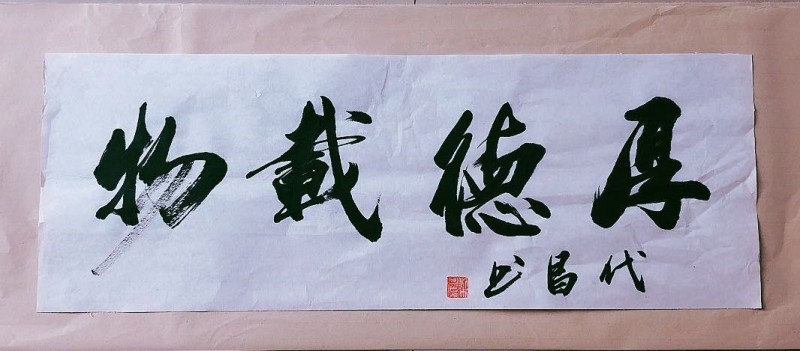 厚德載物
代昌书